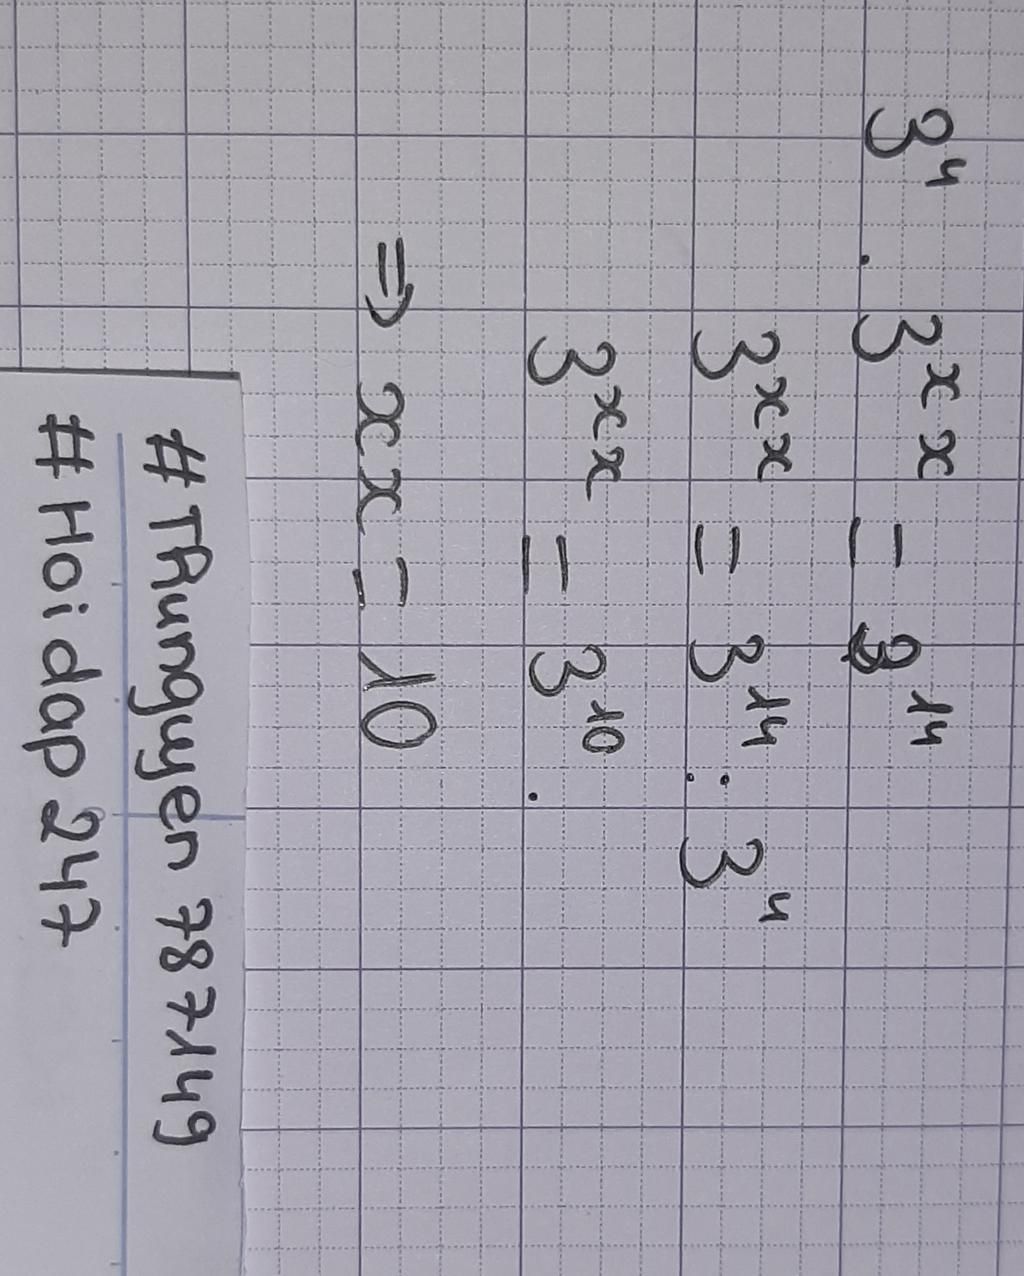 3⁴ . 3ˣˣ = 3¹⁴
3ˣˣ = 3¹⁴ : 3⁴
3ˣˣ = 3¹⁰.
⇒ xx = 10
# Thungyen 787149
# Hoidap 247